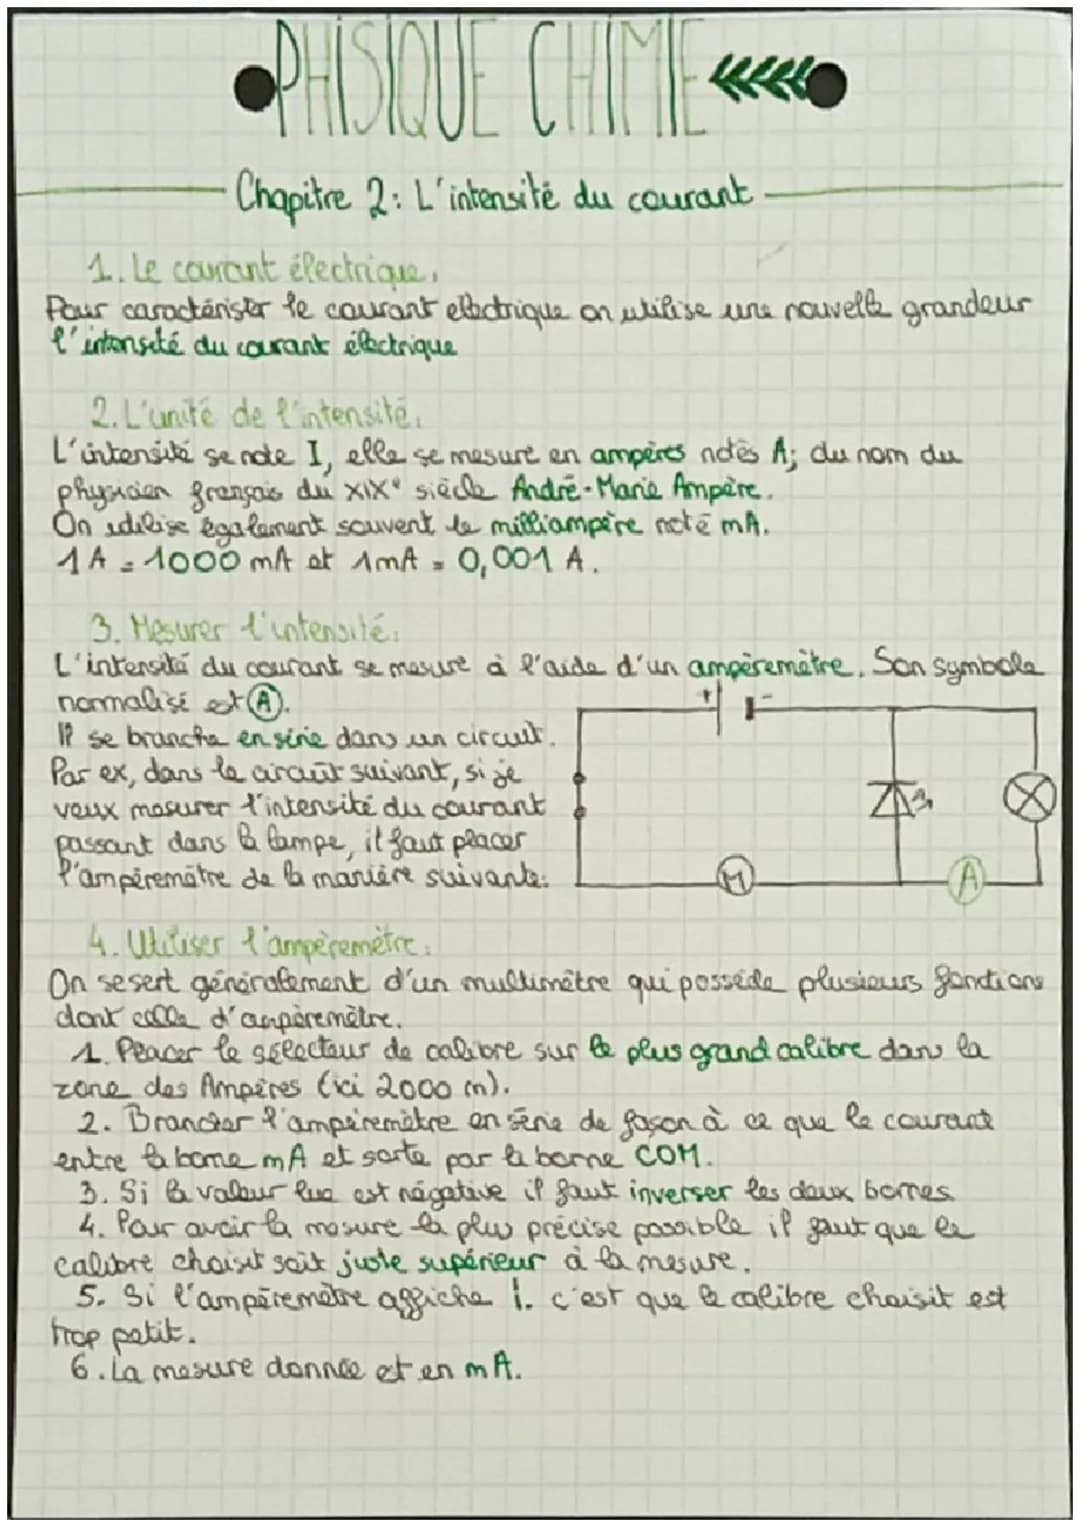 PHISIQUE CHIMIE
Chapitre 2: L'intensité du courant
1. Le courant électrique.
Pour caractériser le courant electrique on utilise une nouvelle grandeur
l'intensité du courant électrique
2. L'unité de l'intensité.
L'intensité se note I, elle se mesure en ampères notés A; du nom du
physicien français du XIXe siècle André-Marie Ampère.
On utilise également souvent le milliampère noté mA.
1A = 1000 mA et 1mA = 0,001 A.
3. Mesurer l'intensité.
L'intensité du courant se mesure à l'aide d'un ampèremètre. Son symbole
normalisé est A.
Il se branche en série dans un circuit.
Par ex, dans le circuit suivant, si je
veux mesurer l'intensité du courant
passant dans la lampe, il faut placer
l'ampèremètre de la manière suivante:
+ -
M A
4. Utiliser l'ampèremètre.
On se sert généralement d'un multimètre qui possède plusieurs fonctions
dont celle d'ampèremètre.
1. Placer le sélecteur de calibre sur le plus grand calibre dans la
zone des Ampères (ici 2000 m).
2. Brancher l'ampèremètre en série de façon à ce que le courant
entre la borne mA et sorte par la borne COM.
3. Si la valeur lue est négative il faut inverser les deux bornes
4. Pour avoir la mesure la plus précise possible il faut que le
calibre choisit soit juste supérieur à la mesure.
5. Si l'ampèremètre affiche 1. c'est que le calibre choisit est
trop petit.
6. La mesure donnée et en mA.